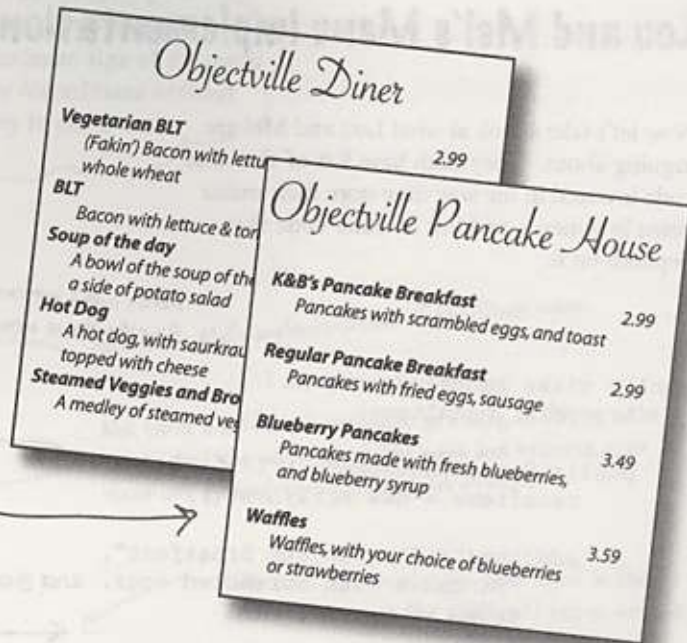 Objectville Diner
Vegetarian BLT
(Fakin') Bacon with lettu
2.99
whole wheat
BLT
Bacon with lettuce & tom
Soup of the day
A bowl of the soup of the
a side of potato salad
Hot Dog
A hot dog, with saurkrau
topped with cheese
Steamed Veggies and Bro
A medley of steamed veg
Objectville Pancake House
K&B's Pancake Breakfast
2.99
Pancakes with scrambled eggs, and toast
Regular Pancake Breakfast
2.99
Pancakes with fried eggs, sausage
Blueberry Pancakes
3.49
Pancakes made with fresh blueberries,
and blueberry syrup
Waffles
3.59
Waffles, with your choice of blueberries
or strawberries